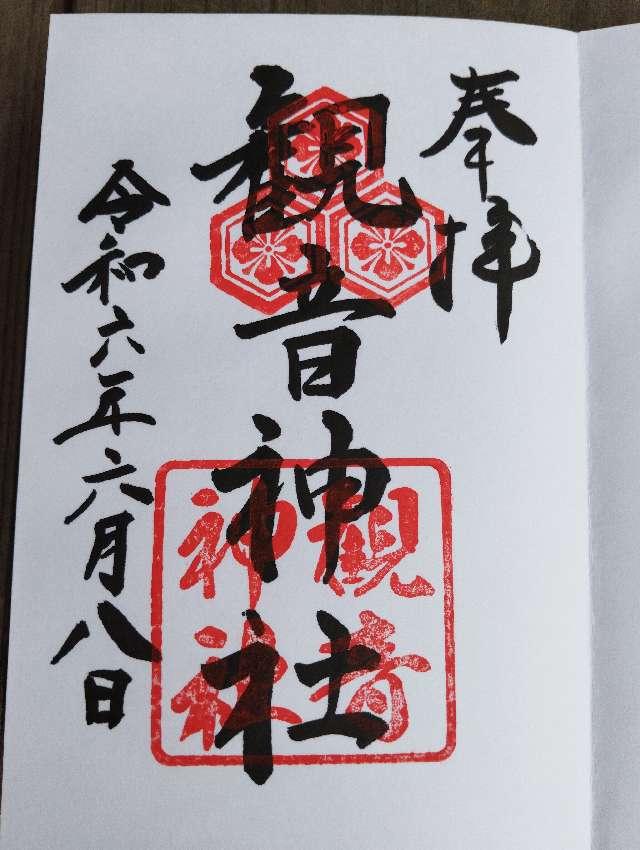 奉拝
観音神社
観音
神社
令和六年六月八日